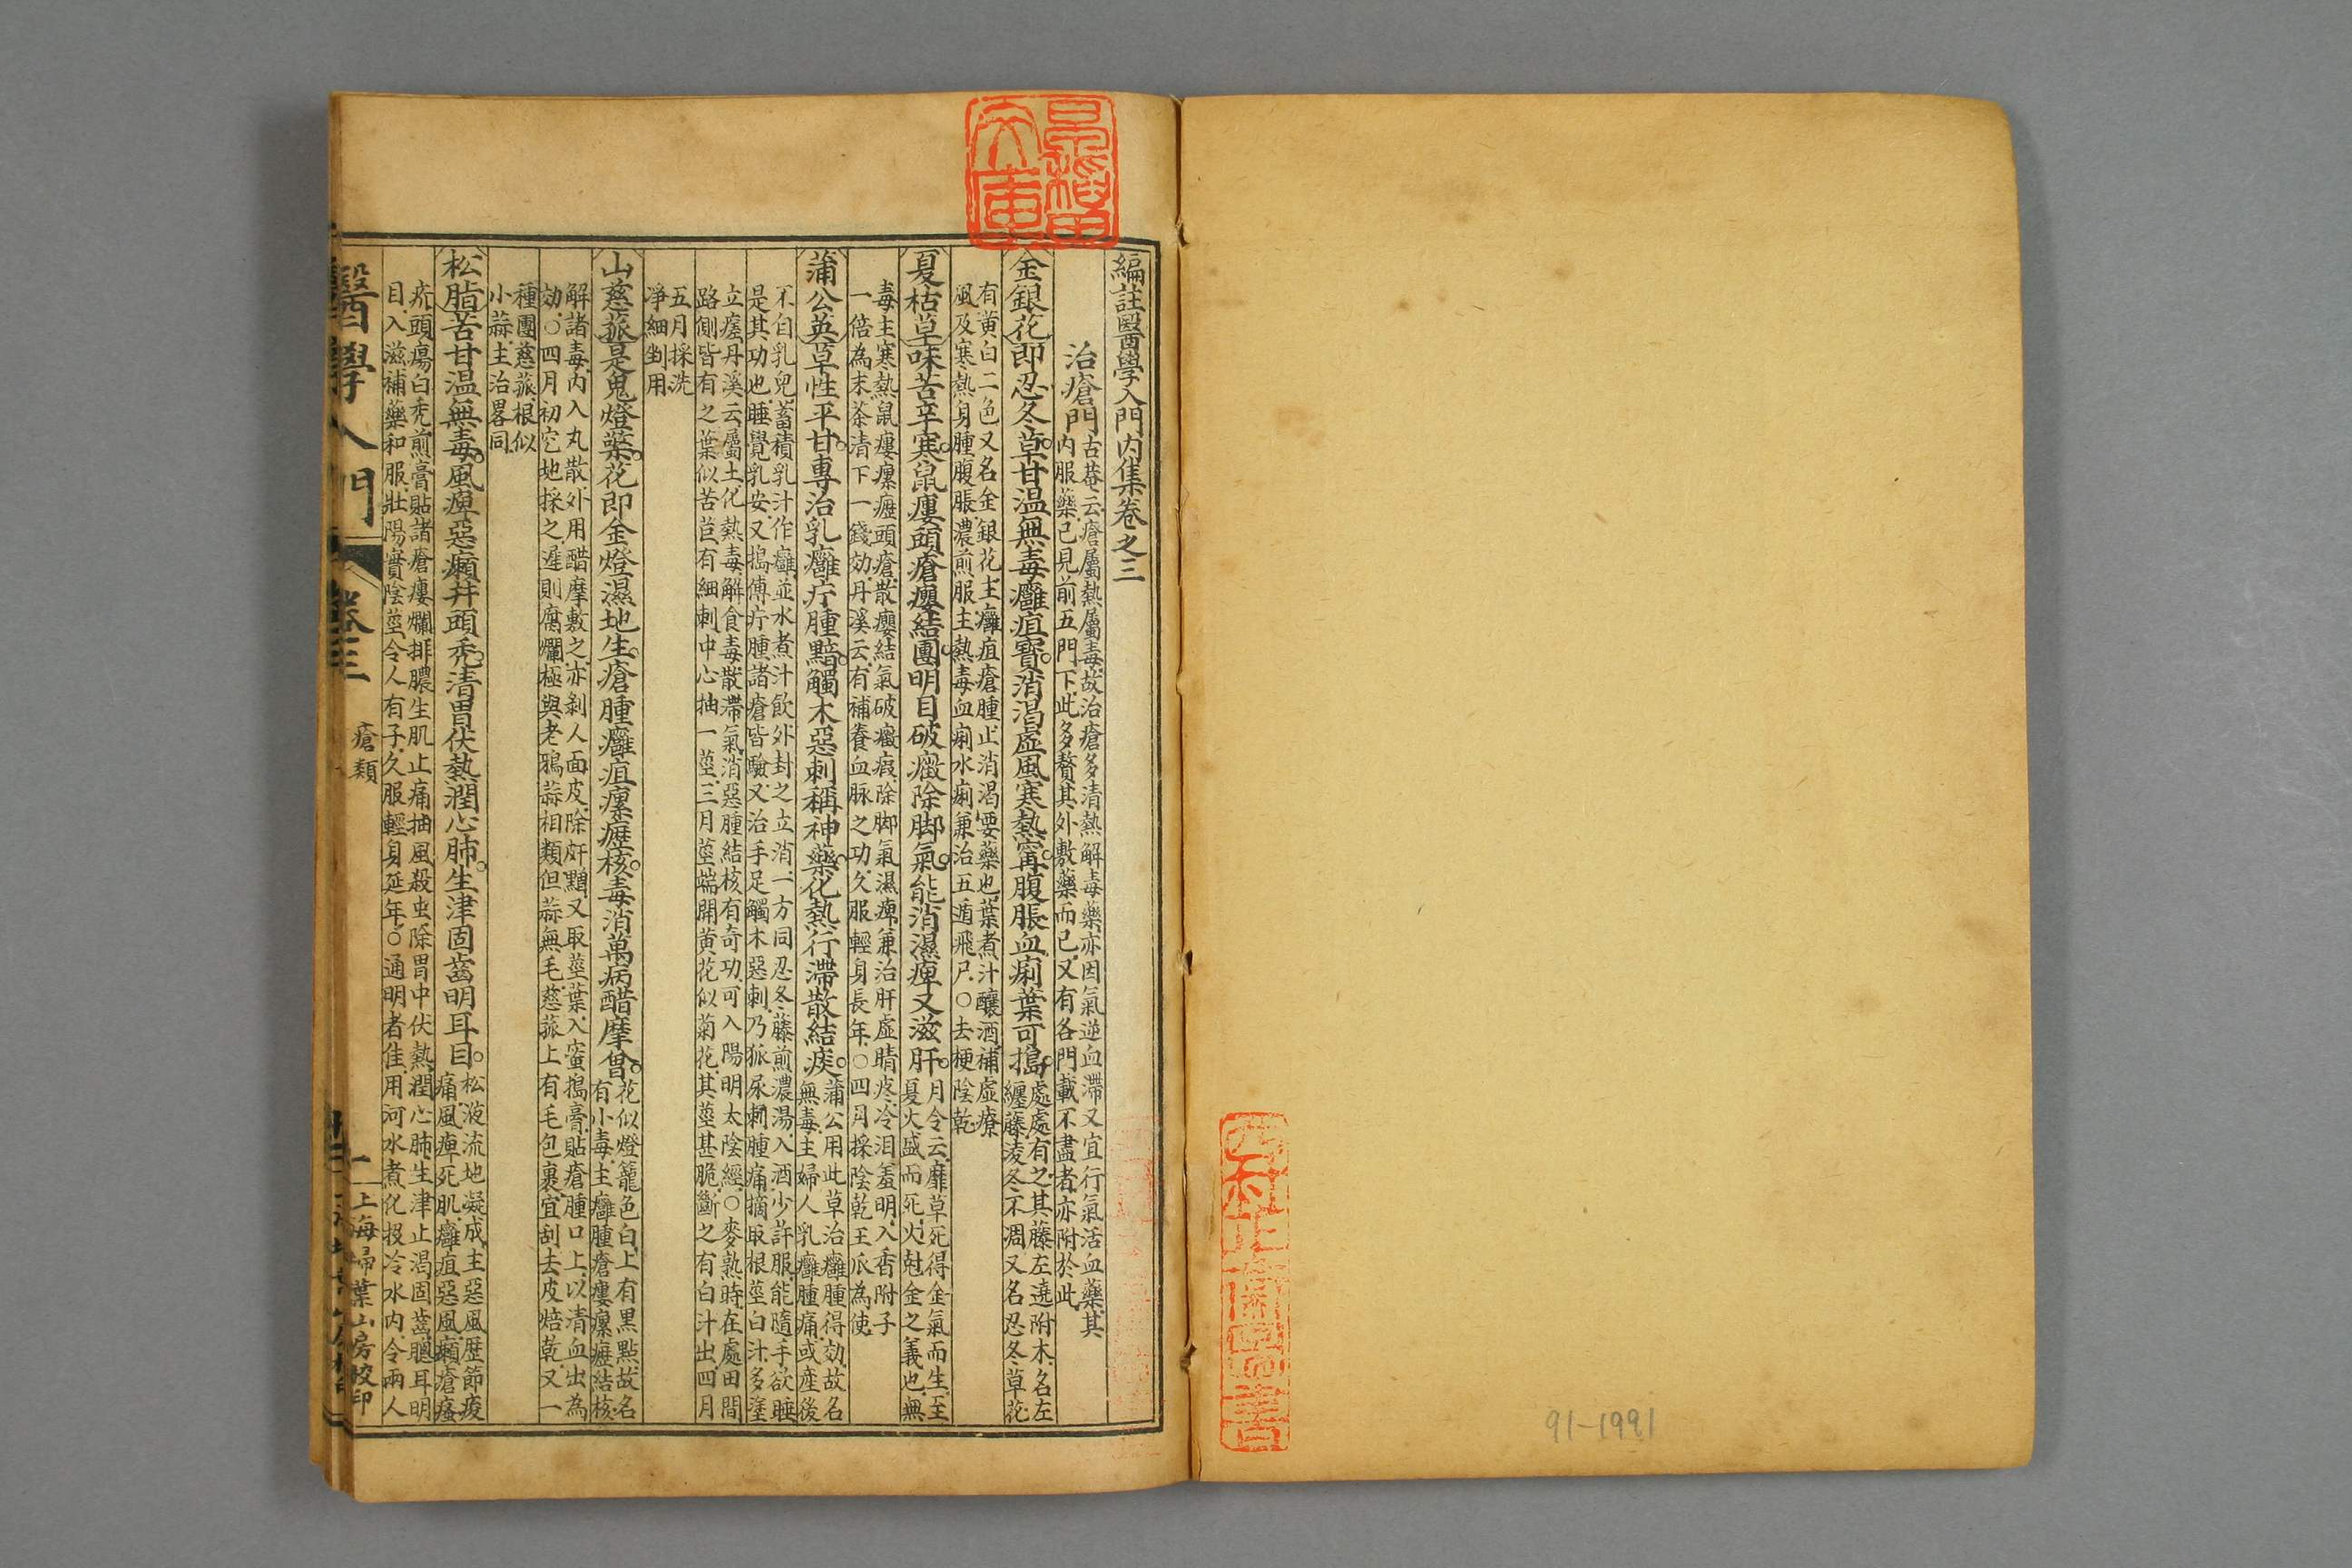 編註醫學入門內集卷之三
治瘡門
古菴云瘡屬熱屬毒故治瘡多清熱解毒藥亦因氣逆血滯又宜行氣活血藥其
內服藥已見前五門下此多贅其外敷藥而已又有各門載不盡者亦附於此
金銀花即忍冬草甘溫無毒癰疽寶消渴虛風寒熱甯腹脹血痢葉可搗
處處有之其藤左遶附木名左
纏藤淩冬不凋又名忍冬草花
有黃白二色又名金銀花主癰疽瘡腫止消渴要藥也葉煮汁釀酒補虛療
風及寒熱身腫腹脹濃煎服主熱毒血痢水痢兼治五遁飛尸○去梗陰乾
夏枯草味苦辛寒鼠瘻頭瘡癭結團明目破癥除脚氣能消濕痺又滋肝
月令云靡草死得金氣而生至
夏火盛而死火尅金之義也無
毒主寒熱鼠瘻瘰癧頭瘡散癭結氣破癥瘕除脚氣濕痺兼治肝虛睛疼冷淚羞明入香附子
一倍為末茶清下一錢効丹溪云有補養血脉之功久服輕身長年○四月採陰乾王瓜為使
蒲公英草性平甘專治乳癰疔腫黯觸木惡刺稱神藥化熱行滯散結痰
蒲公用此草治癰腫得効故名
無毒主婦人乳癰腫痛或產後
不自乳兒蓄積乳汁作癰並水煮汁飲外封之立消一方同忍冬藤煎濃湯入酒少許服能隨手欲睡
是其功也睡覺乳安又搗傅疔腫諸瘡皆驗又治手足觸木惡刺乃狐尿刺腫痛摘取根莖白汁多塗
立瘥丹溪云屬土化熱毒解食毒散滯氣消惡腫結核有奇功可入陽明太陰經○麥熟時在處田間
路側皆有之葉似苦苣有細刺中心抽一莖三月莖端開黃花似菊花其莖甚脆斷之有白汁出四月
五月採洗
淨細剉用
山慈菰是鬼燈藥花即金燈濕地生瘡腫癰疽瘰癧核毒消萬病醋摩曾
花似燈籠色白上有黑點故名
有小毒主癰腫瘡瘻瘰癧結核
解諸毒內入丸散外用醋摩敷之亦剝人面皮除皯䵳又取莖葉入蜜搗膏貼瘡腫口上以清血出為
効○四月初空地採之遲則腐爛極與老鴉蒜相類但蒜無毛慈菰上有毛包裹宜刮去皮焙乾又一
種團慈菰根似
小蒜主治畧同
松脂苦甘溫無毒風痺惡癩幷頭禿清胃伏熱潤心肺生津固齒明耳目
松液流地凝成主惡風歷節痠
痛風痺死肌癰疽惡風癩瘡瘙
疥頭瘍白禿煎膏貼諸瘡瘻爛排膿生肌止痛抽風殺虫除胃中伏熱潤心肺生津止渴固齒聰耳明
目入滋補藥和服壯陽實陰莖令人有子久服輕身延年○通明者佳用河水煮化投冷水內令兩人
醫學入門 卷三 瘡類 一 上海掃葉山房校印
91-1991